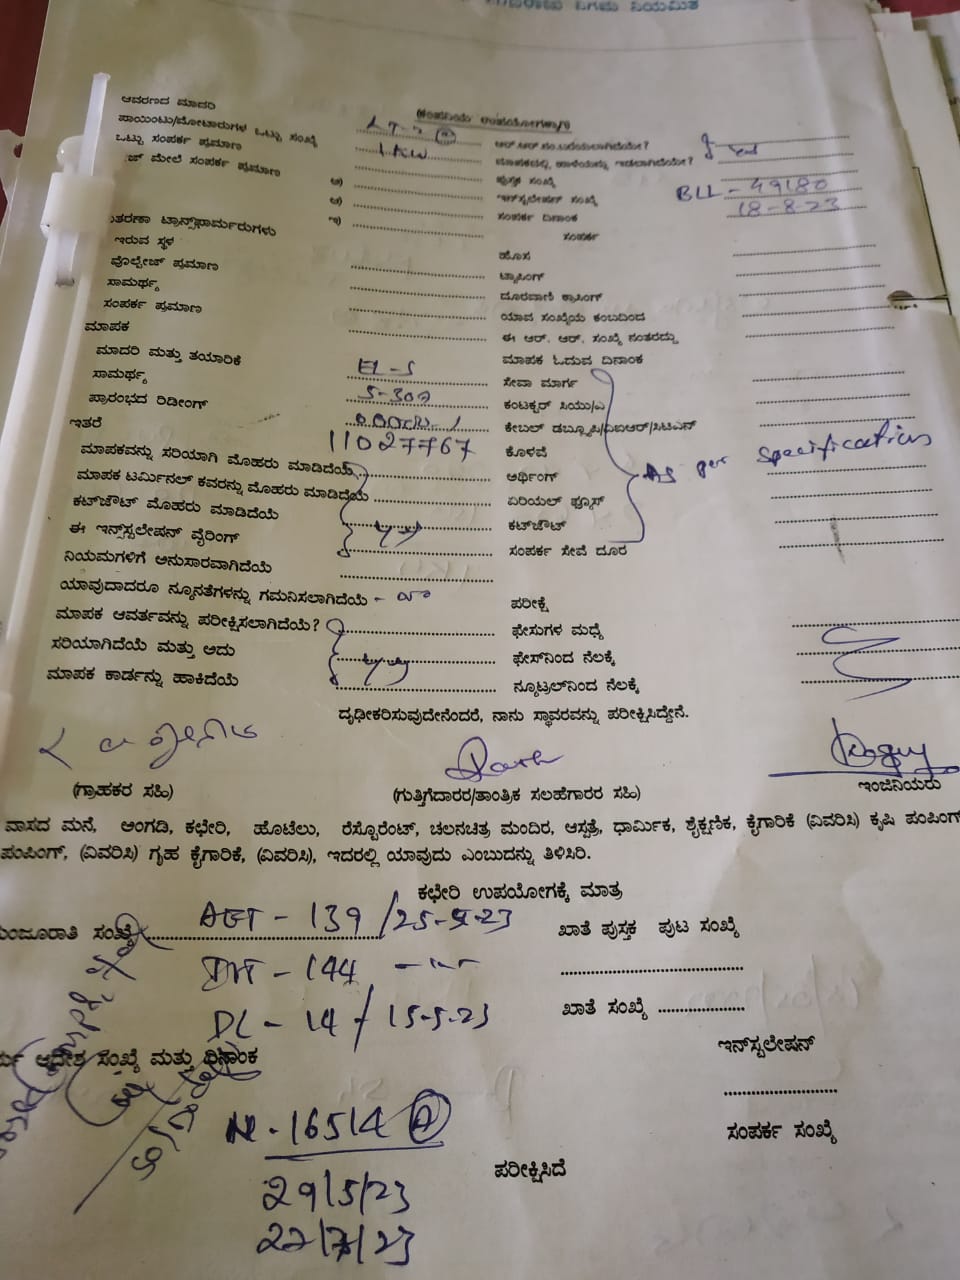 ನಿಗಮ ನಿಯಮಿತ
ಆವರಣದ ಮಾದರಿ
(ಕಂಪನಿಯ ಉಪಯೋಗಕ್ಕಾಗಿ)
ಪಾಯಿಂಟು/ಮೋಟಾರುಗಳ ಒಟ್ಟು ಸಂಖ್ಯೆ
ಒಟ್ಟು ಸಂಪರ್ಕ ಪ್ರಮಾಣ 1KW
ಮೇಲೆ ಸಂಪರ್ಕ ಪ್ರಮಾಣ ಅ) ಪುಸ್ತಕ ಸಂಖ್ಯೆ
ಆ) ಇನ್‌ಸ್ಟಲೇಷನ್ ಸಂಖ್ಯೆ BLL - 49180
ಇ) ಸಂಪರ್ಕ ದಿನಾಂಕ 18-8-23
ಟ್ರಾನ್ಸ್‌ಫಾರ್ಮರುಗಳು ಸಂಪರ್ಕ
ಇರುವ ಸ್ಥಳ ಹೊಸ
ವೊಲ್ಟೇಜ್ ಪ್ರಮಾಣ ಟ್ಯಾಪಿಂಗ್
ಸಾಮರ್ಥ್ಯ ದೂರವಾಣಿ ಕ್ರಾಸಿಂಗ್
ಸಂಪರ್ಕ ಪ್ರಮಾಣ ಯಾವ ಸಂಖ್ಯೆಯ ಕಂಬದಿಂದ
ಮಾಪಕ ಈ ಆರ್. ಆರ್. ಸಂಖ್ಯೆ ನಂತರದ್ದು
ಮಾದರಿ ಮತ್ತು ತಯಾರಿಕೆ EL-S ಮಾಪಕ ಓದುವ ದಿನಾಂಕ
ಸಾಮರ್ಥ್ಯ 5-30a ಸೇವಾ ಮಾರ್ಗ
ಪ್ರಾರಂಭದ ರಿಡೀಂಗ್ ಕಂಟಕ್ಟರ್ ಸಿಯು/ಎ
ಇತರೆ 11027767 ಕೇಬಲ್ ಡಬ್ಲ್ಯೂಪಿ/ವಿಐಆರ್/ಸಿಟಿಎಸ್
ಮಾಪಕವನ್ನು ಸರಿಯಾಗಿ ಮೊಹರು ಮಾಡಿದೆಯೆ ಕೊಳವೆ
ಮಾಪಕ ಟರ್ಮಿನಲ್ ಕವರನ್ನು ಮೊಹರು ಮಾಡಿದೆಯೆ ಅರ್ಥಿಂಗ್ As per specification
ಕಟ್‌ಔಟ್ ಮೊಹರು ಮಾಡಿದೆಯೆ ಏರಿಯಲ್ ಫ್ಯೂಸ್
ಈ ಇನ್‌ಸ್ಟಲೇಷನ್ ವೈರಿಂಗ್ ಕಟ್‌ಔಟ್
ನಿಯಮಗಳಿಗೆ ಅನುಸಾರವಾಗಿದೆಯೆ ಸಂಪರ್ಕ ಸೇವೆ ದೂರ
ಯಾವುದಾದರೂ ನ್ಯೂನತೆಗಳನ್ನು ಗಮನಿಸಲಾಗಿದೆಯೆ - no ಪರೀಕ್ಷೆ
ಮಾಪಕ ಆವರ್ತವನ್ನು ಪರೀಕ್ಷಿಸಲಾಗಿದೆಯೆ? ಫೇಸುಗಳ ಮಧ್ಯೆ
ಸರಿಯಾಗಿದೆಯೆ ಮತ್ತು ಅದು ಫೇಸ್‌ನಿಂದ ನೆಲಕ್ಕೆ
ಮಾಪಕ ಕಾರ್ಡನ್ನು ಹಾಕಿದೆಯೆ ನ್ಯೂಟ್ರಲ್‌ನಿಂದ ನೆಲಕ್ಕೆ
ದೃಢೀಕರಿಸುವುದೇನೆಂದರೆ, ನಾನು ಸ್ಥಾವರವನ್ನು ಪರೀಕ್ಷಿಸಿದ್ದೇನೆ.
(ಗ್ರಾಹಕರ ಸಹಿ) (ಗುತ್ತಿಗೆದಾರರ/ತಾಂತ್ರಿಕ ಸಲಹೆಗಾರರ ಸಹಿ) ಇಂಜಿನಿಯರು
ವಾಸದ ಮನೆ, ಅಂಗಡಿ, ಕಛೇರಿ, ಹೊಟೆಲು, ರೆಸ್ಟೊರೆಂಟ್, ಚಲನಚಿತ್ರ ಮಂದಿರ, ಆಸ್ಪತ್ರೆ, ಧಾರ್ಮಿಕ, ಶೈಕ್ಷಣಿಕ, ಕೈಗಾರಿಕೆ (ವಿವರಿಸಿ) ಕೃಷಿ ಪಂಪಿಂಗ್
ಪಂಪಿಂಗ್, (ವಿವರಿಸಿ) ಗೃಹ ಕೈಗಾರಿಕೆ, (ವಿವರಿಸಿ), ಇದರಲ್ಲಿ ಯಾವುದು ಎಂಬುದನ್ನು ತಿಳಿಸಿರಿ.
ಕಛೇರಿ ಉಪಯೋಗಕ್ಕೆ ಮಾತ್ರ
ಮಂಜೂರಾತಿ ಸಂಖ್ಯೆ AGT - 139 /25-5-23 ಖಾತೆ ಪುಸ್ತಕ ಪುಟ ಸಂಖ್ಯೆ
144
DL - 14 / 15-5-23 ಖಾತೆ ಸಂಖ್ಯೆ
ಆದೇಶ ಸಂಖ್ಯೆ ಮತ್ತು ದಿನಾಂಕ ಇನ್‌ಸ್ಟಲೇಷನ್
16514 A ಸಂಪರ್ಕ ಸಂಖ್ಯೆ
ಪರೀಕ್ಷಿಸಿದೆ
29/5/23
22/7/23